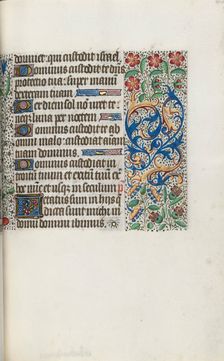 dormiet qui custodit israel.
Dominus custodit te d̄ns
protectio tua: super manū
dexteram tuam
Per diem sol non uret te
neqz luna per noctem
Dominus custodit te ab
omni malo: custodiat aīam
tuam dominus.
Dominus custodiat in
troitum tuum et exitū tuū
ex hoc nūc et usqz in seculum
Letatus sum in hijs
que dicta sunt michi in
domū domini ibimus